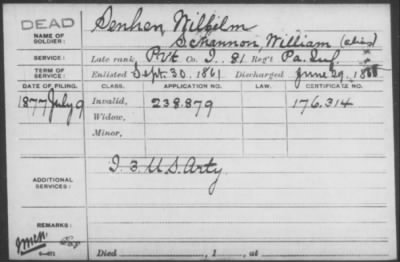 DEAD
NAME OF SOLDIER: Senhen, Wilhilm
Schannon, William (alias)
SERVICE: Late rank, Pvt Co. I. 81 Reg't Pa. Inf.
TERM OF SERVICE: Enlisted Sept. 30. 1861 Discharged June 29. 18
DATE OF FILING. CLASS. APPLICATION NO. LAW. CERTIFICATE NO.
1877 July 9 Invalid, 238.879 176.314
Widow,
Minor,
ADDITIONAL SERVICES: I. 3 U.S. Arty.
REMARKS:
Died , 1 , at